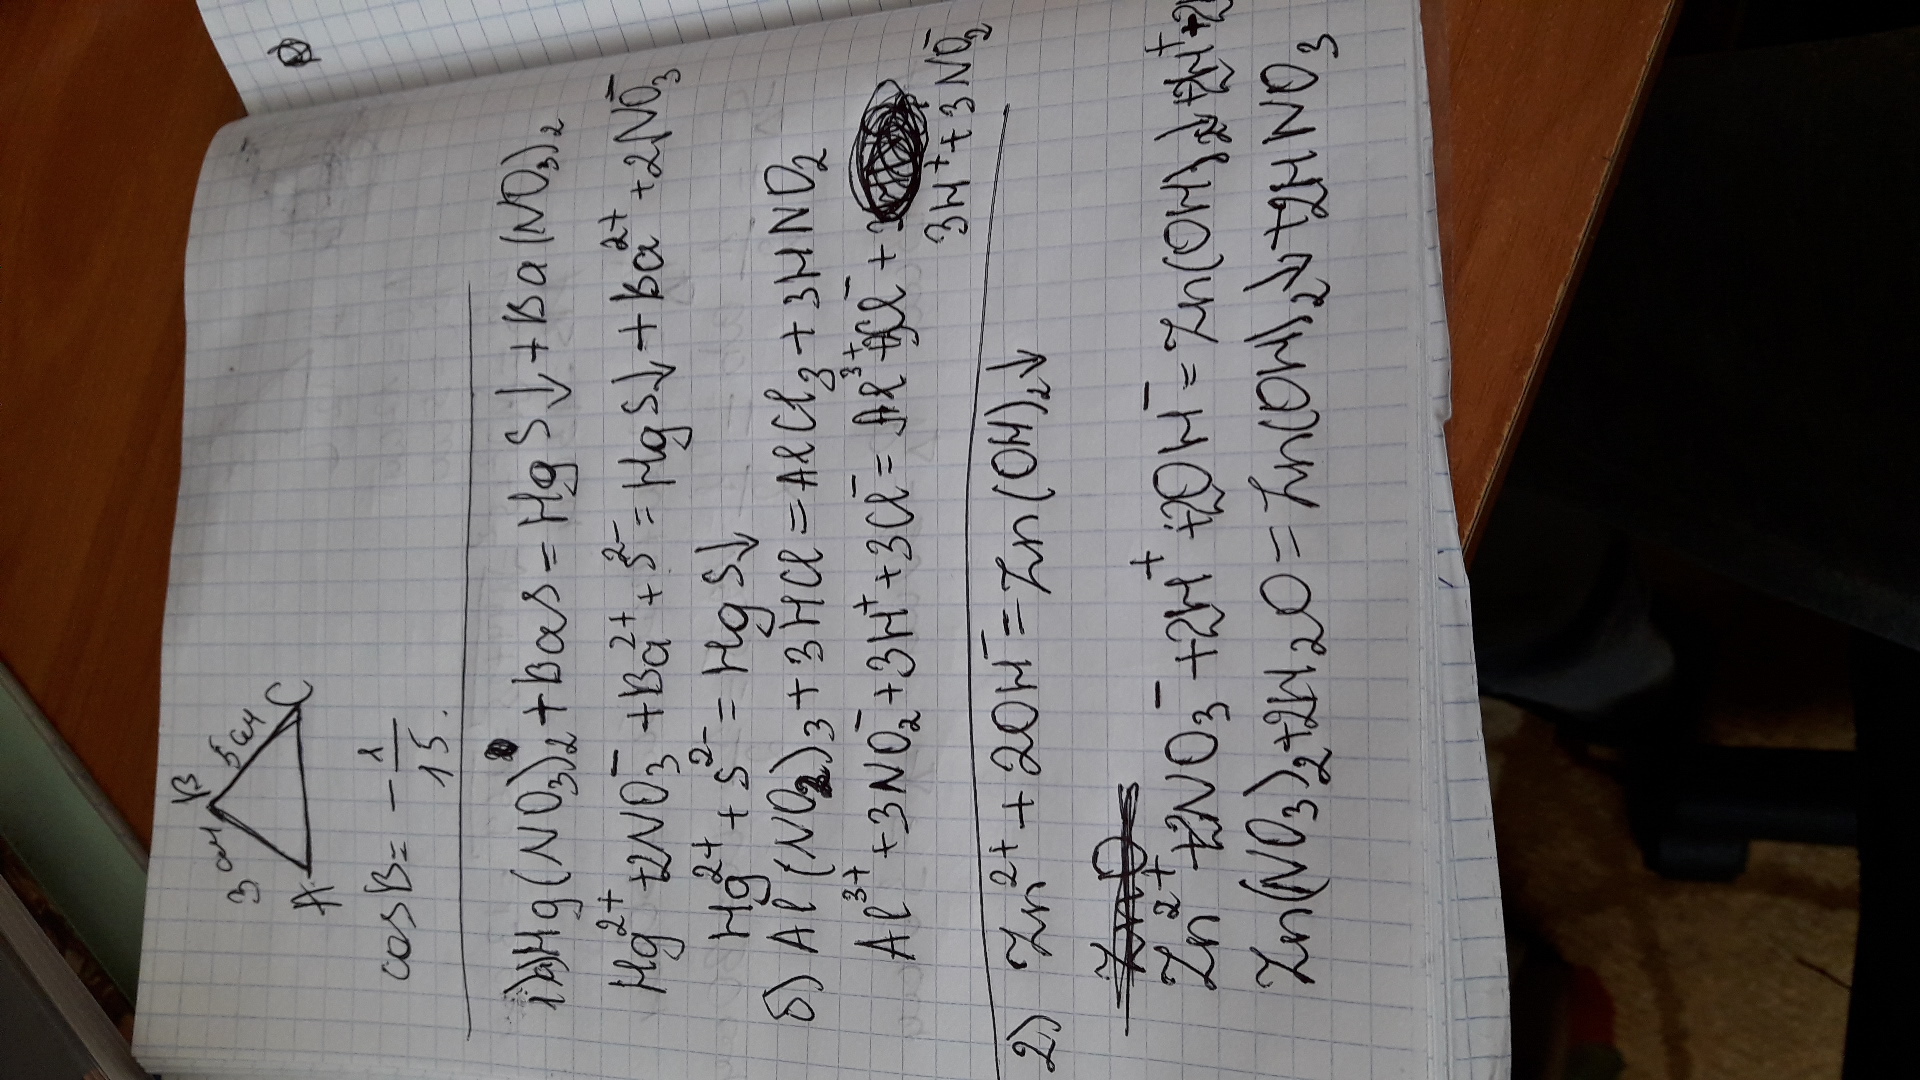 B
3 см
5 см
A
C
cos B = - 1/15.
1) a) Hg(NO3)2 + BaS = HgS↓ + Ba(NO3)2
Hg²⁺ + 2NO3⁻ + Ba²⁺ + S²⁻ = HgS↓ + Ba²⁺ + 2NO3⁻
Hg²⁺ + S²⁻ = HgS↓
б) Al(NO2)3 + 3HCl = AlCl3 + 3HNO2
Al³⁺ + 3NO2⁻ + 3H⁺ + 3Cl⁻ = Al³⁺ + 3Cl⁻ +
3H⁺ + 3NO2⁻
2) Zn²⁺ + 2OH⁻ = Zn(OH)2↓
Zn²⁺ + 2NO3⁻ + 2H⁺ + 2OH⁻ = Zn(OH)2↓ + 2H⁺ +
Zn(NO3)2 + 2H2O = Zn(OH)2↓ + 2HNO3